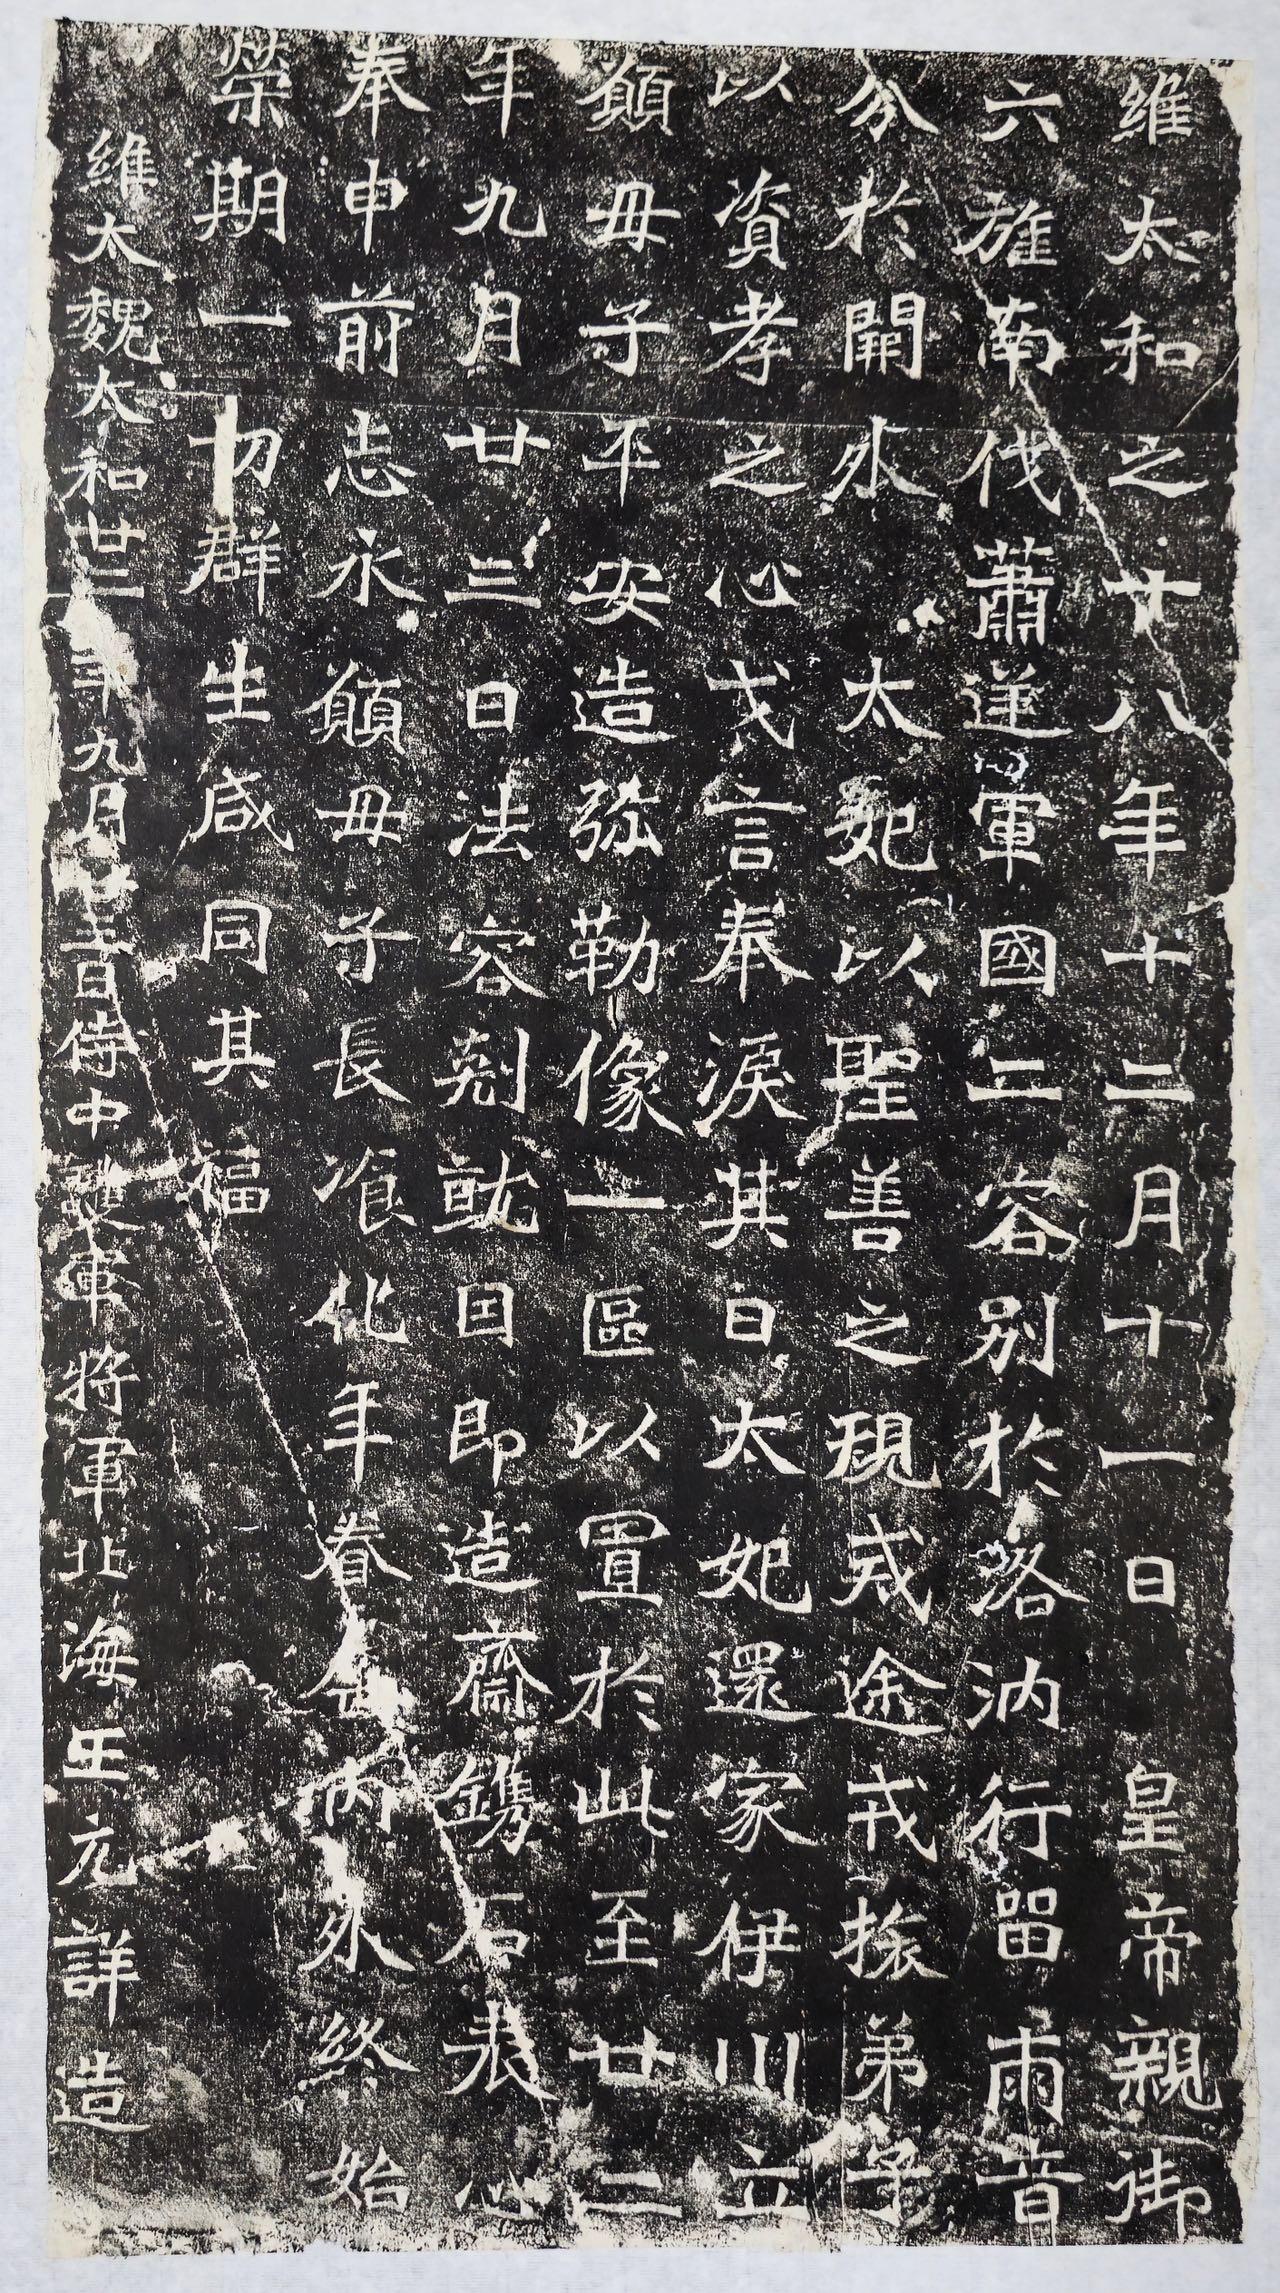 維太和之廿八年十二月十一日皇帝親御
六旌南伐蕭逆軍國二容別於洛汭行留兩音
分於開外太妃以聖善之規戒途戎旅弟子
以資孝之心戈言奉淚其日太妃還家伊川立
願母子平安造弥勒像一區以置於此至廿二
年九月廿三日法容剋就因即造齋鐫石表心
奉申前志永願母子長飡化年眷屬內外終始
榮期一切群生咸同其福
維大魏太和廿二年九月廿三日侍中護軍將軍北海王元詳造